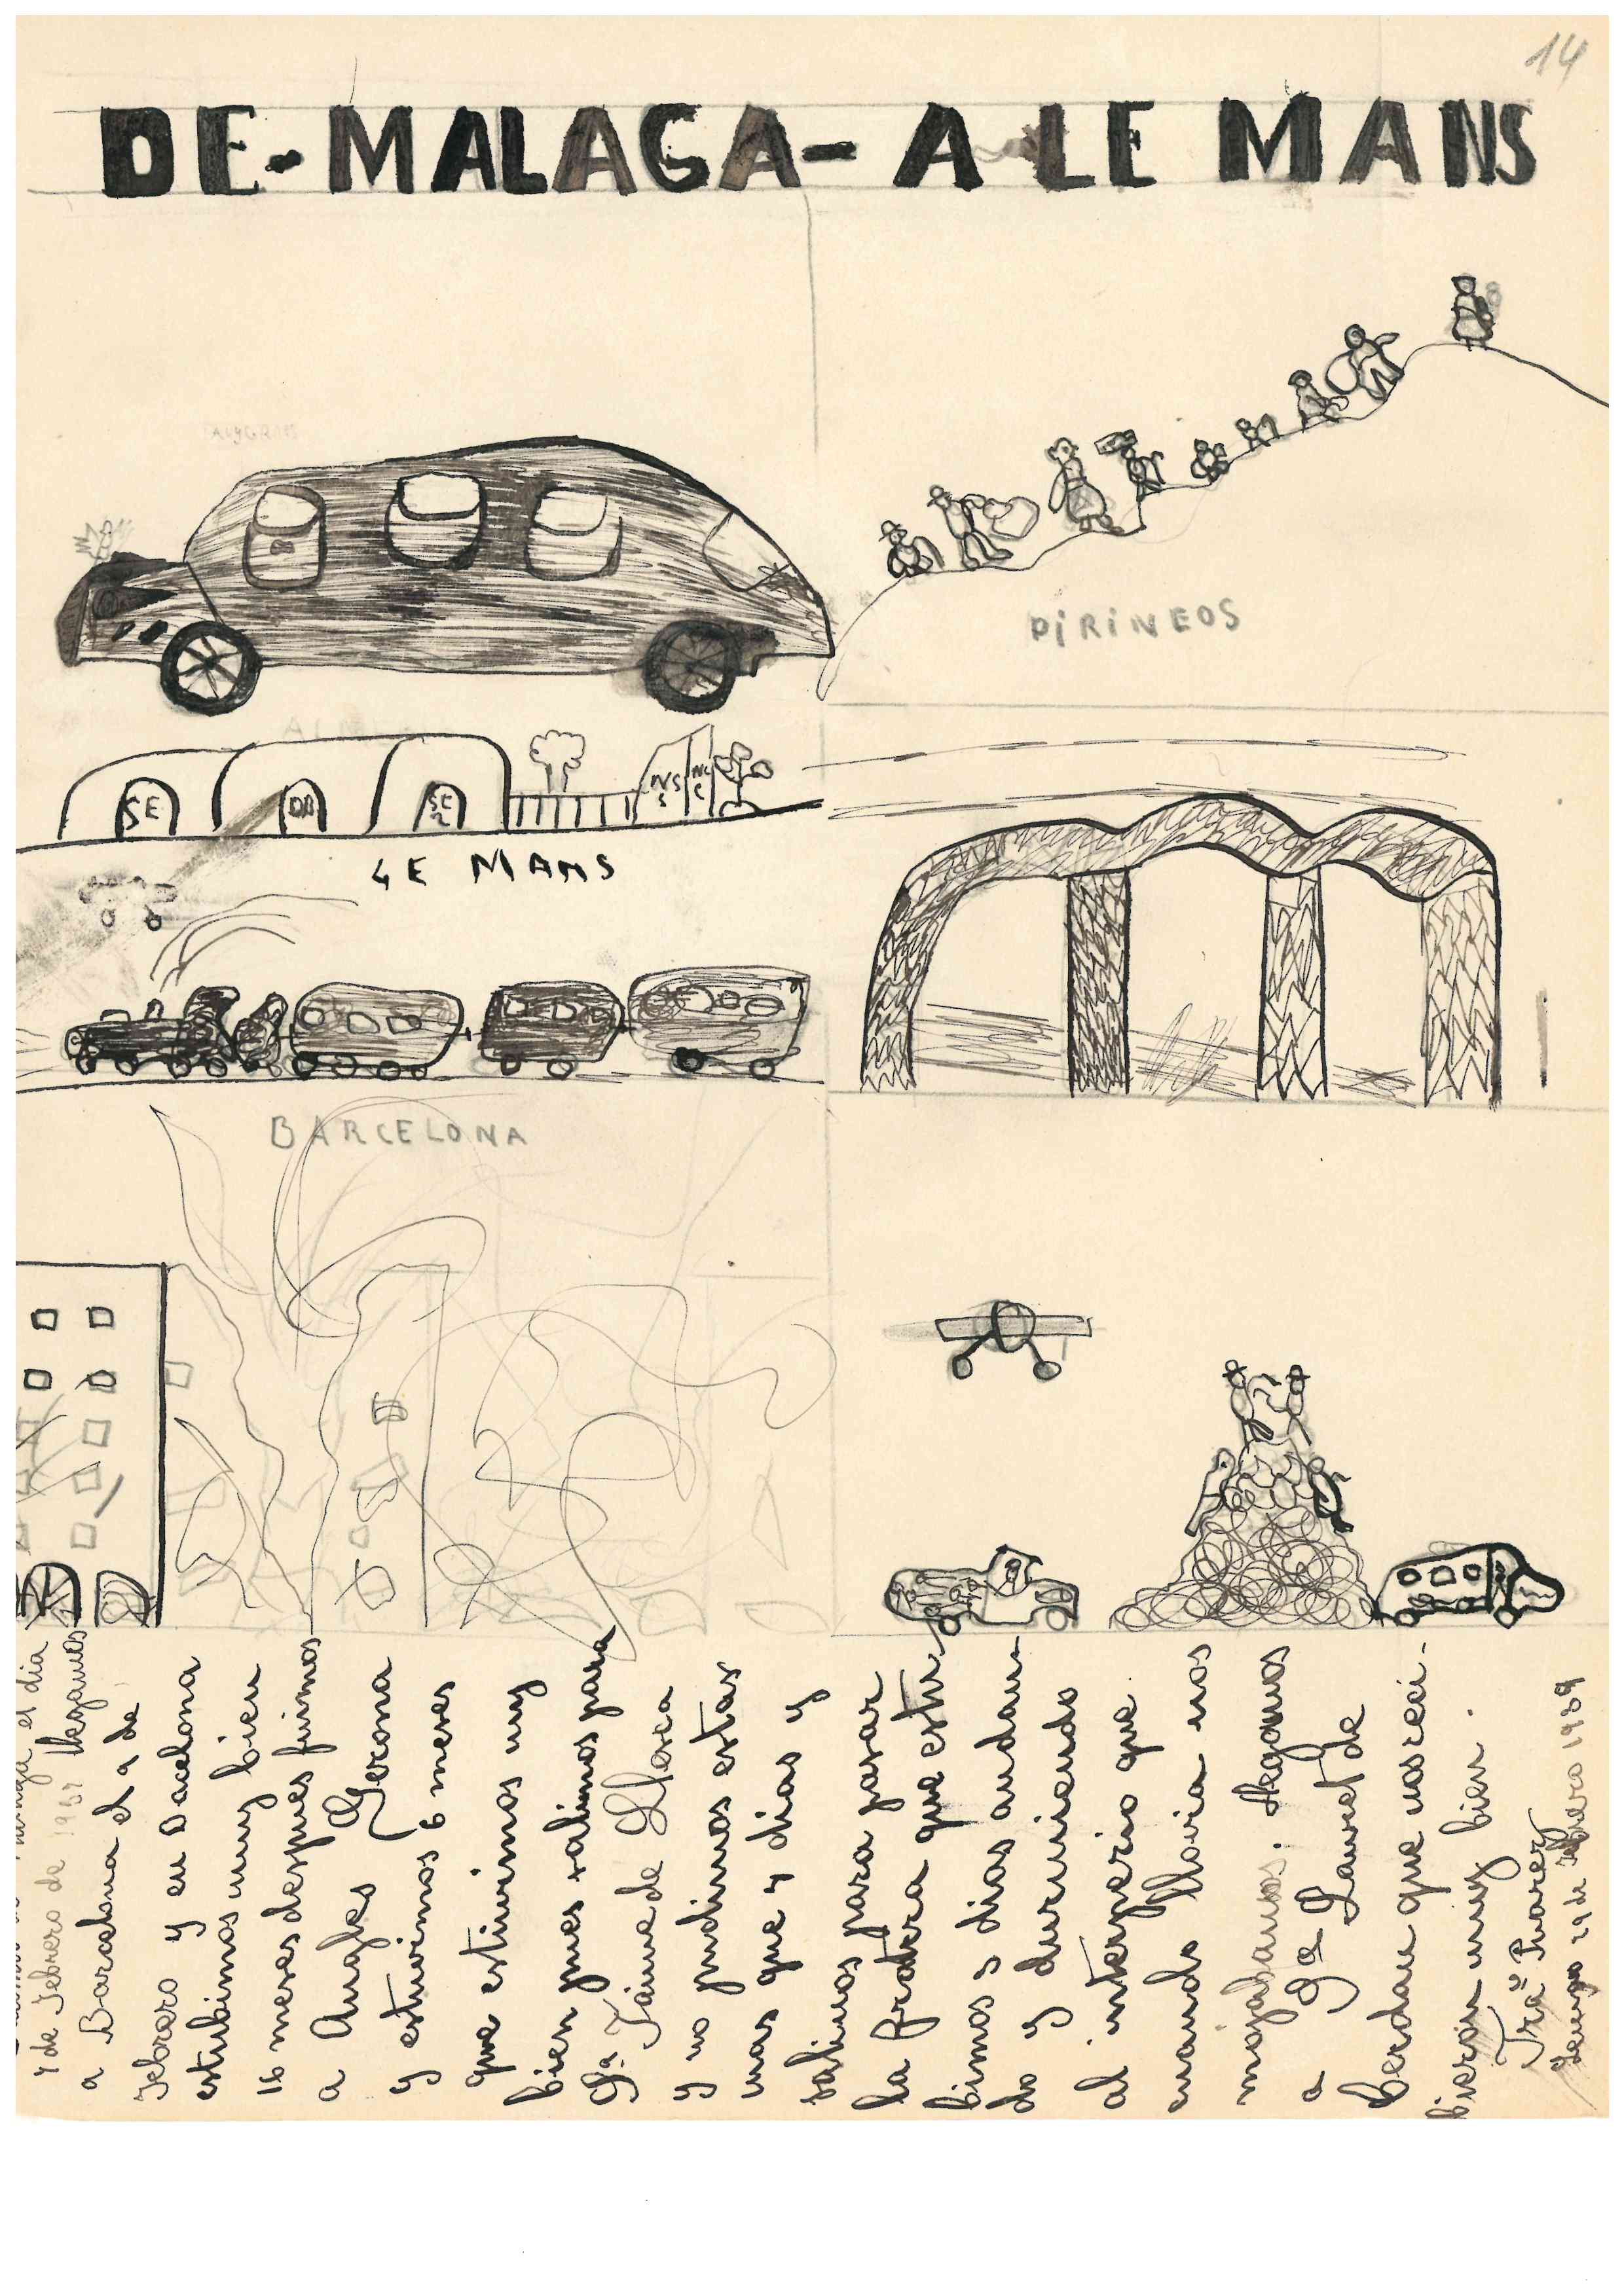 14
DE-MALAGA-A LE MANS
PiRiNEOS
SE
DB
SE
2
LE MANS
BARCELONA
el dia
7 de Febrero de 1937 llegamos
a Barcelona el 9 de
Febrero y en Bacelona
estubimos muy bien
16 meses despues fuimos
a Angles Gerona
y estuvimos 6 meses
que estuvimos muy
bien pues salimos para
Sª. Jaime de Llierca
y no pudimos estar
mas que 7 dias y
salimos para pasar
la frotera que estu
bimos 5 dias andan
do y durmiendo
al interperio que
cuando llovia nos
mojabamos. llegamos
a
berdau que nos reci-
bieron muy bien.
Frª Suarez
29 de Febrero 1939